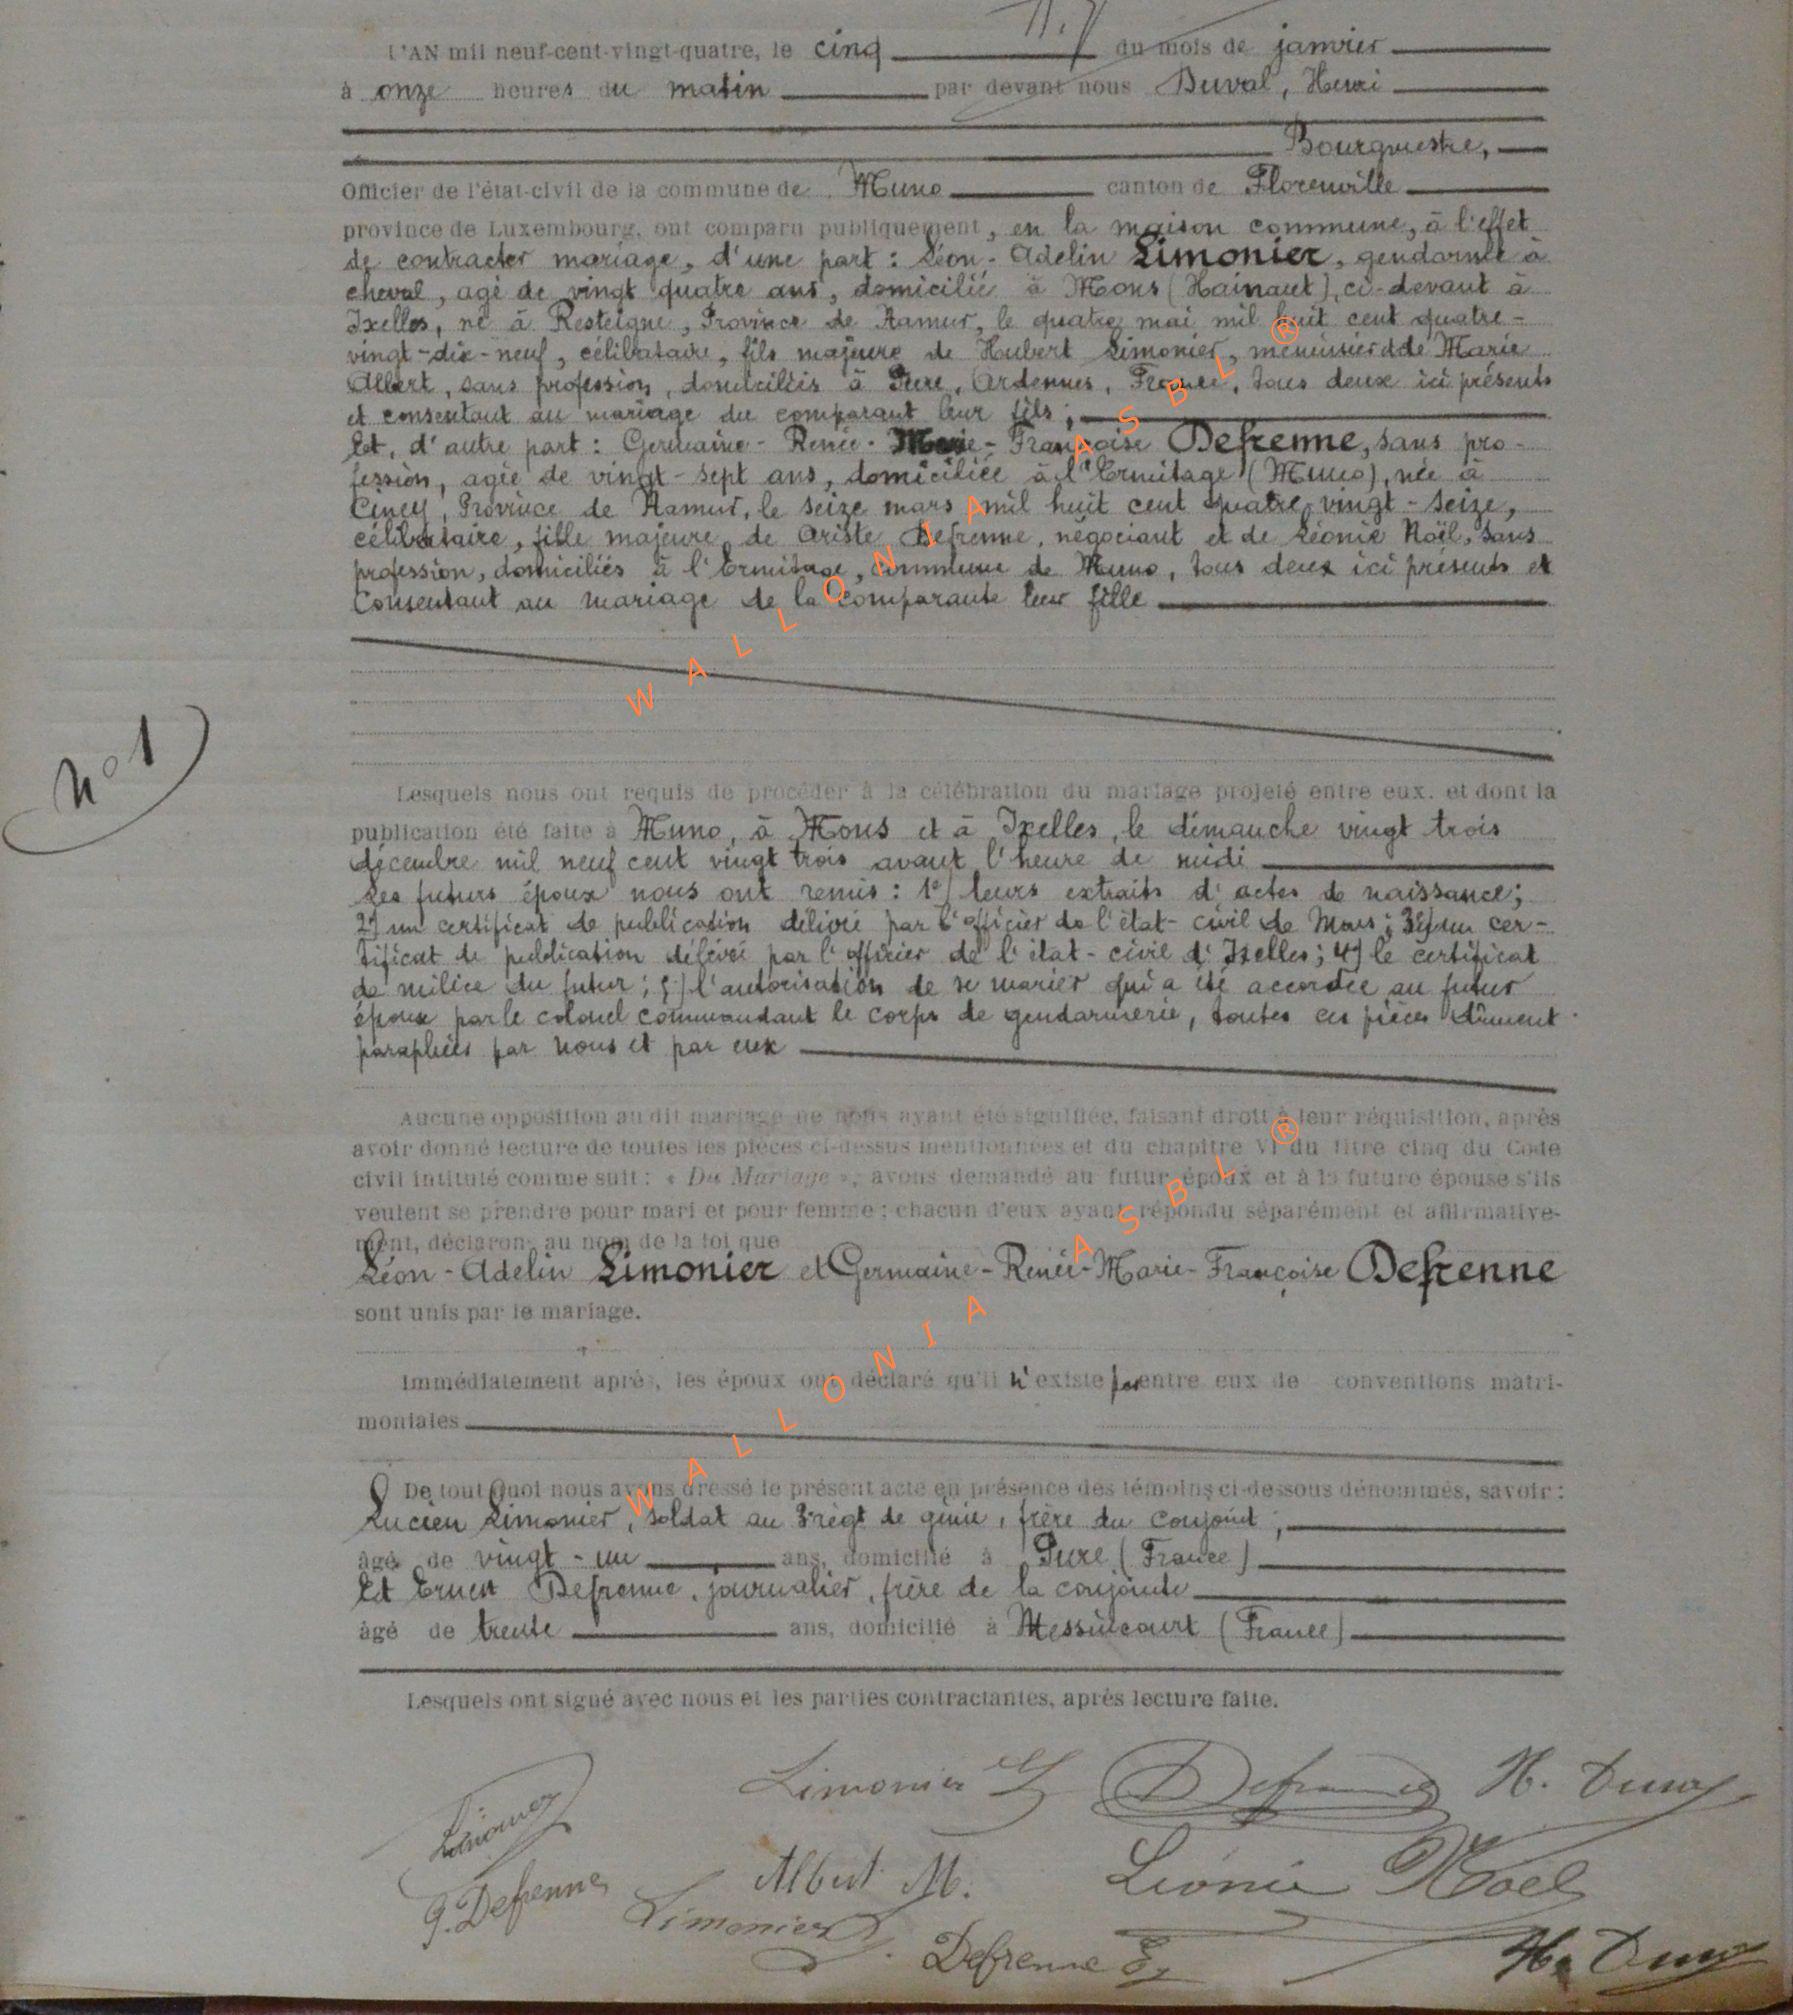 L'AN mil neuf-cent-vingt-quatre, le cinq du mois de janvier
à onze heures du matin par devant nous Duval, Henri
Bourgmestre,
Officier de l'état-civil de la commune de Muno canton de Florenville
province de Luxembourg, ont comparu publiquement, en la maison commune, à l'effet
de contracter mariage, d'une part : Léon-Adelin Limonier, gendarme à
cheval, agé de vingt quatre ans, domicilié à Mons (Hainaut), ci-devant à
Ixelles, né à Resteigne, Province de Namur, le quatre mai mil huit cent quatre-
vingt-dix-neuf, célibataire, fils majeure de Hubert Limonier, menuisier & de Marie
Albert, sans profession, domiciliés à Pure, Ardennes, France, tous deux ici présents
et consentant au mariage du comparant leur fils ;
Et, d'autre part : Germaine-Renée-Marie-Françoise Defrenne, sans pro-
fession, agée de vingt-sept ans, domiciliée à l'Ermitage (Muno), née à
Ciney, Province de Namur, le seize mars mil huit cent quatre-vingt-seize,
célibataire, fille majeure de Ariste Defrenne, négociant et de Léonie Noël, sans
profession, domiciliés à l'Ermitage, commune de Muno, tous deux ici présents et
Consentant au mariage de la comparante leur fille
N° 1
Lesquels nous ont requis de procéder à la célébration du mariage projeté entre eux. et dont la
publication été faite à Muno, à Mons et à Ixelles, le dimanche vingt trois
décembre mil neuf cent vingt trois avant l'heure de midi
Les futurs époux nous ont remis : 1°/ leurs extraits d'actes de naissance ;
2°/ un certificat de publication délivré par l'officier de l'état-civil de Mons ; 3°/ un cer-
tificat de publication délivré par l'officier de l'état-civil d'Ixelles ; 4°/ le certificat
de milice du futur ; 5°/ l'autorisation de se marier qui a été accordée au futur
époux par le colonel commandant le corps de gendarmerie, toutes ces pièces dûment
paraphées par nous et par eux
Aucune opposition au dit mariage ne nous ayant été signifiée, faisant droit à leur réquisition, après
avoir donné lecture de toutes les pièces ci-dessus mentionnées et du chapitre VI du titre cinq du Code
civil intitulé comme suit : « Du Mariage », avons demandé au futur époux et à la future épouse s'ils
veulent se prendre pour mari et pour femme ; chacun d'eux ayant répondu séparément et affirmative-
ment, déclarons au nom de la loi que
Léon-Adelin Limonier et Germaine-Renée-Marie-Françoise Defrenne
sont unis par le mariage.
Immédiatement après, les époux ont déclaré qu'il n'existe pas entre eux de conventions matri-
moniales
De tout quoi nous avons dressé le présent acte en présence des témoins ci-dessous dénommés, savoir :
Lucien Limonier, soldat au 3e régt de génie, frère du conjoint ;
âgé de vingt-un ans, domicilié à Pure (France)
Et Ernest Defrenne, journalier, frère de la conjointe
âgé de trente ans, domicilié à Messincourt (France)
Lesquels ont signé avec nous et les parties contractantes, après lecture faite.
Limonier Limonier Defrenne H. Duval
G. Defrenne Albert M. Léonie Noël
Limonier Defrenne E. H. Duval
WALLONIA ASBL ®
WALLONIA ASBL ®